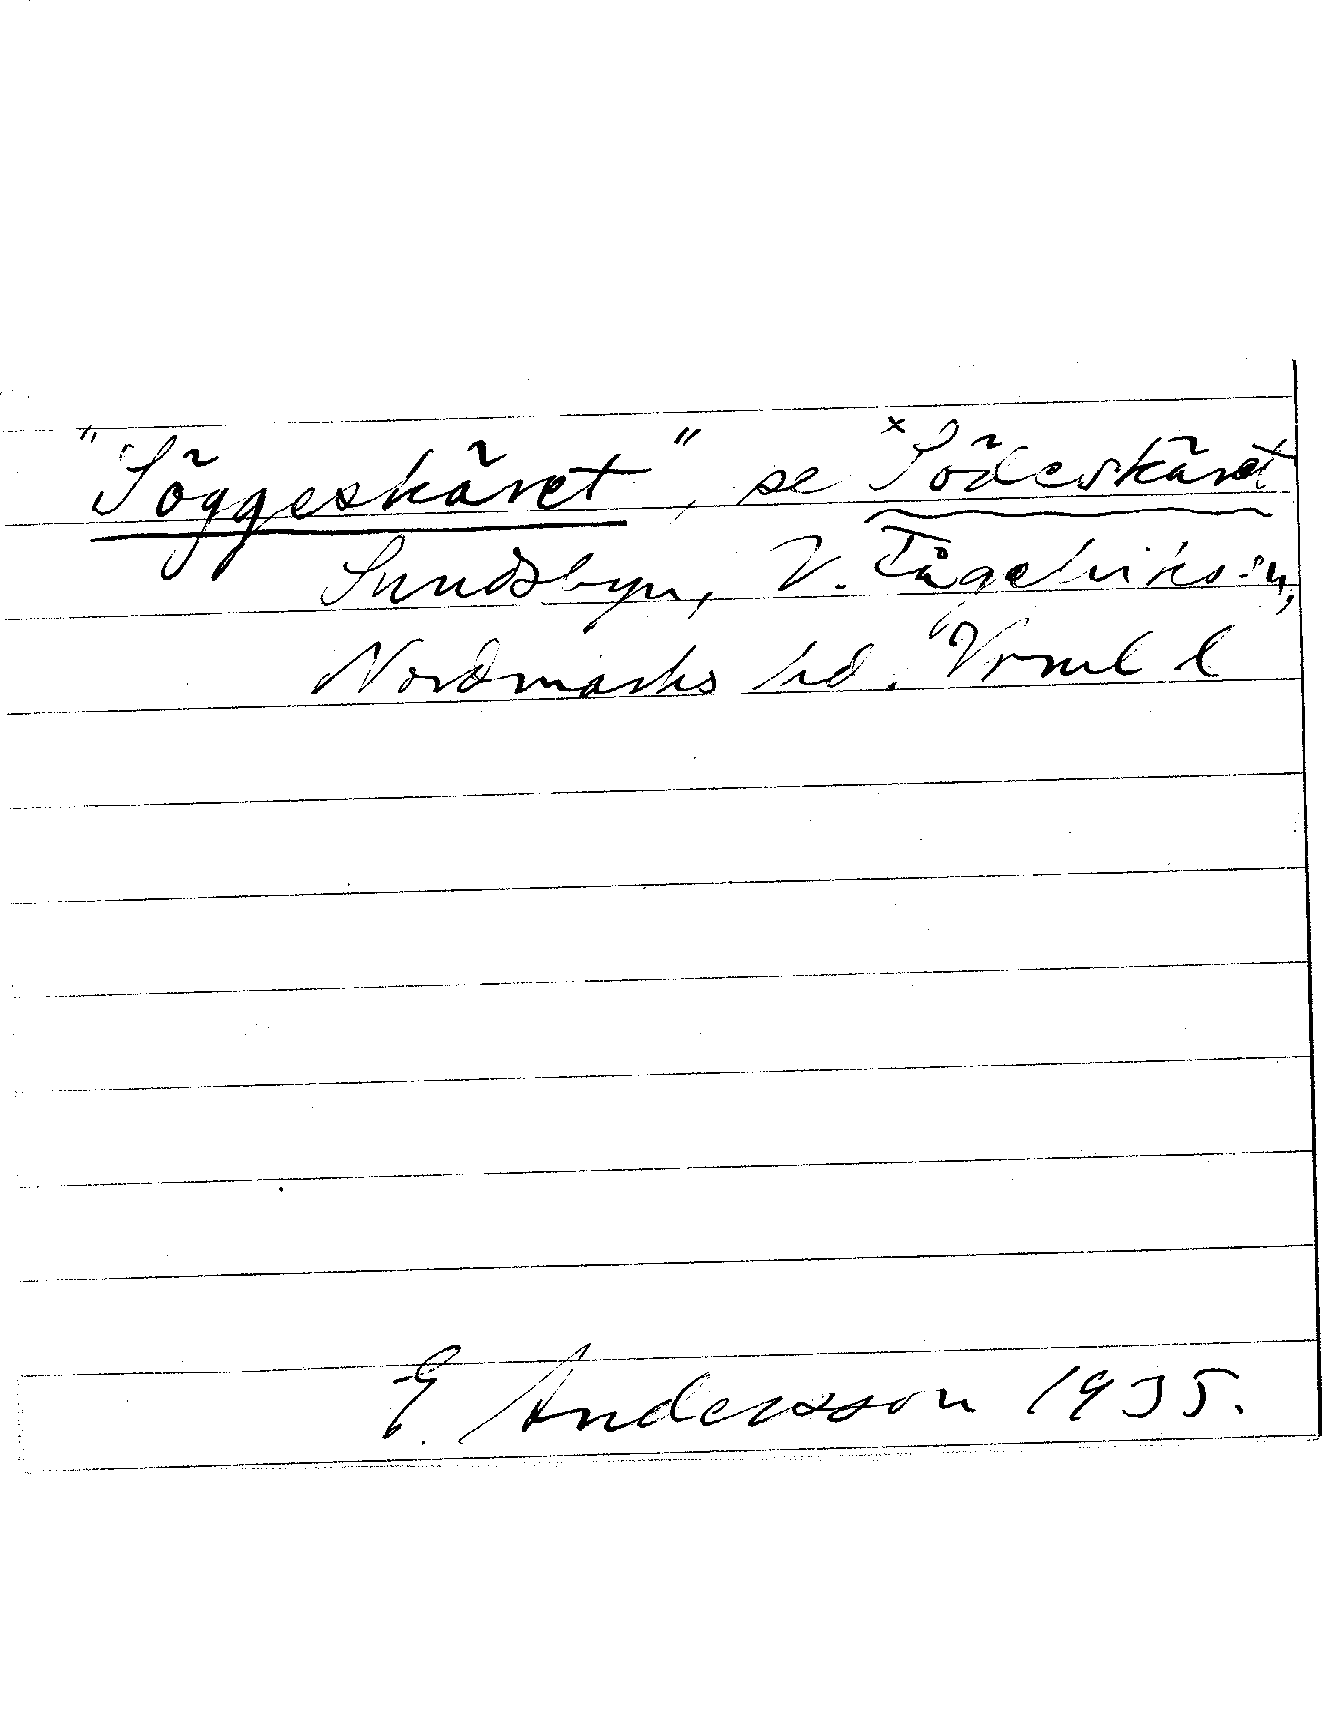 "Söggeskäret", se ˣSödeskäret
Sundsbyn, V. Fågelviks sn,
Nordmarks hd. Vrml l
E. Andersson 1935.